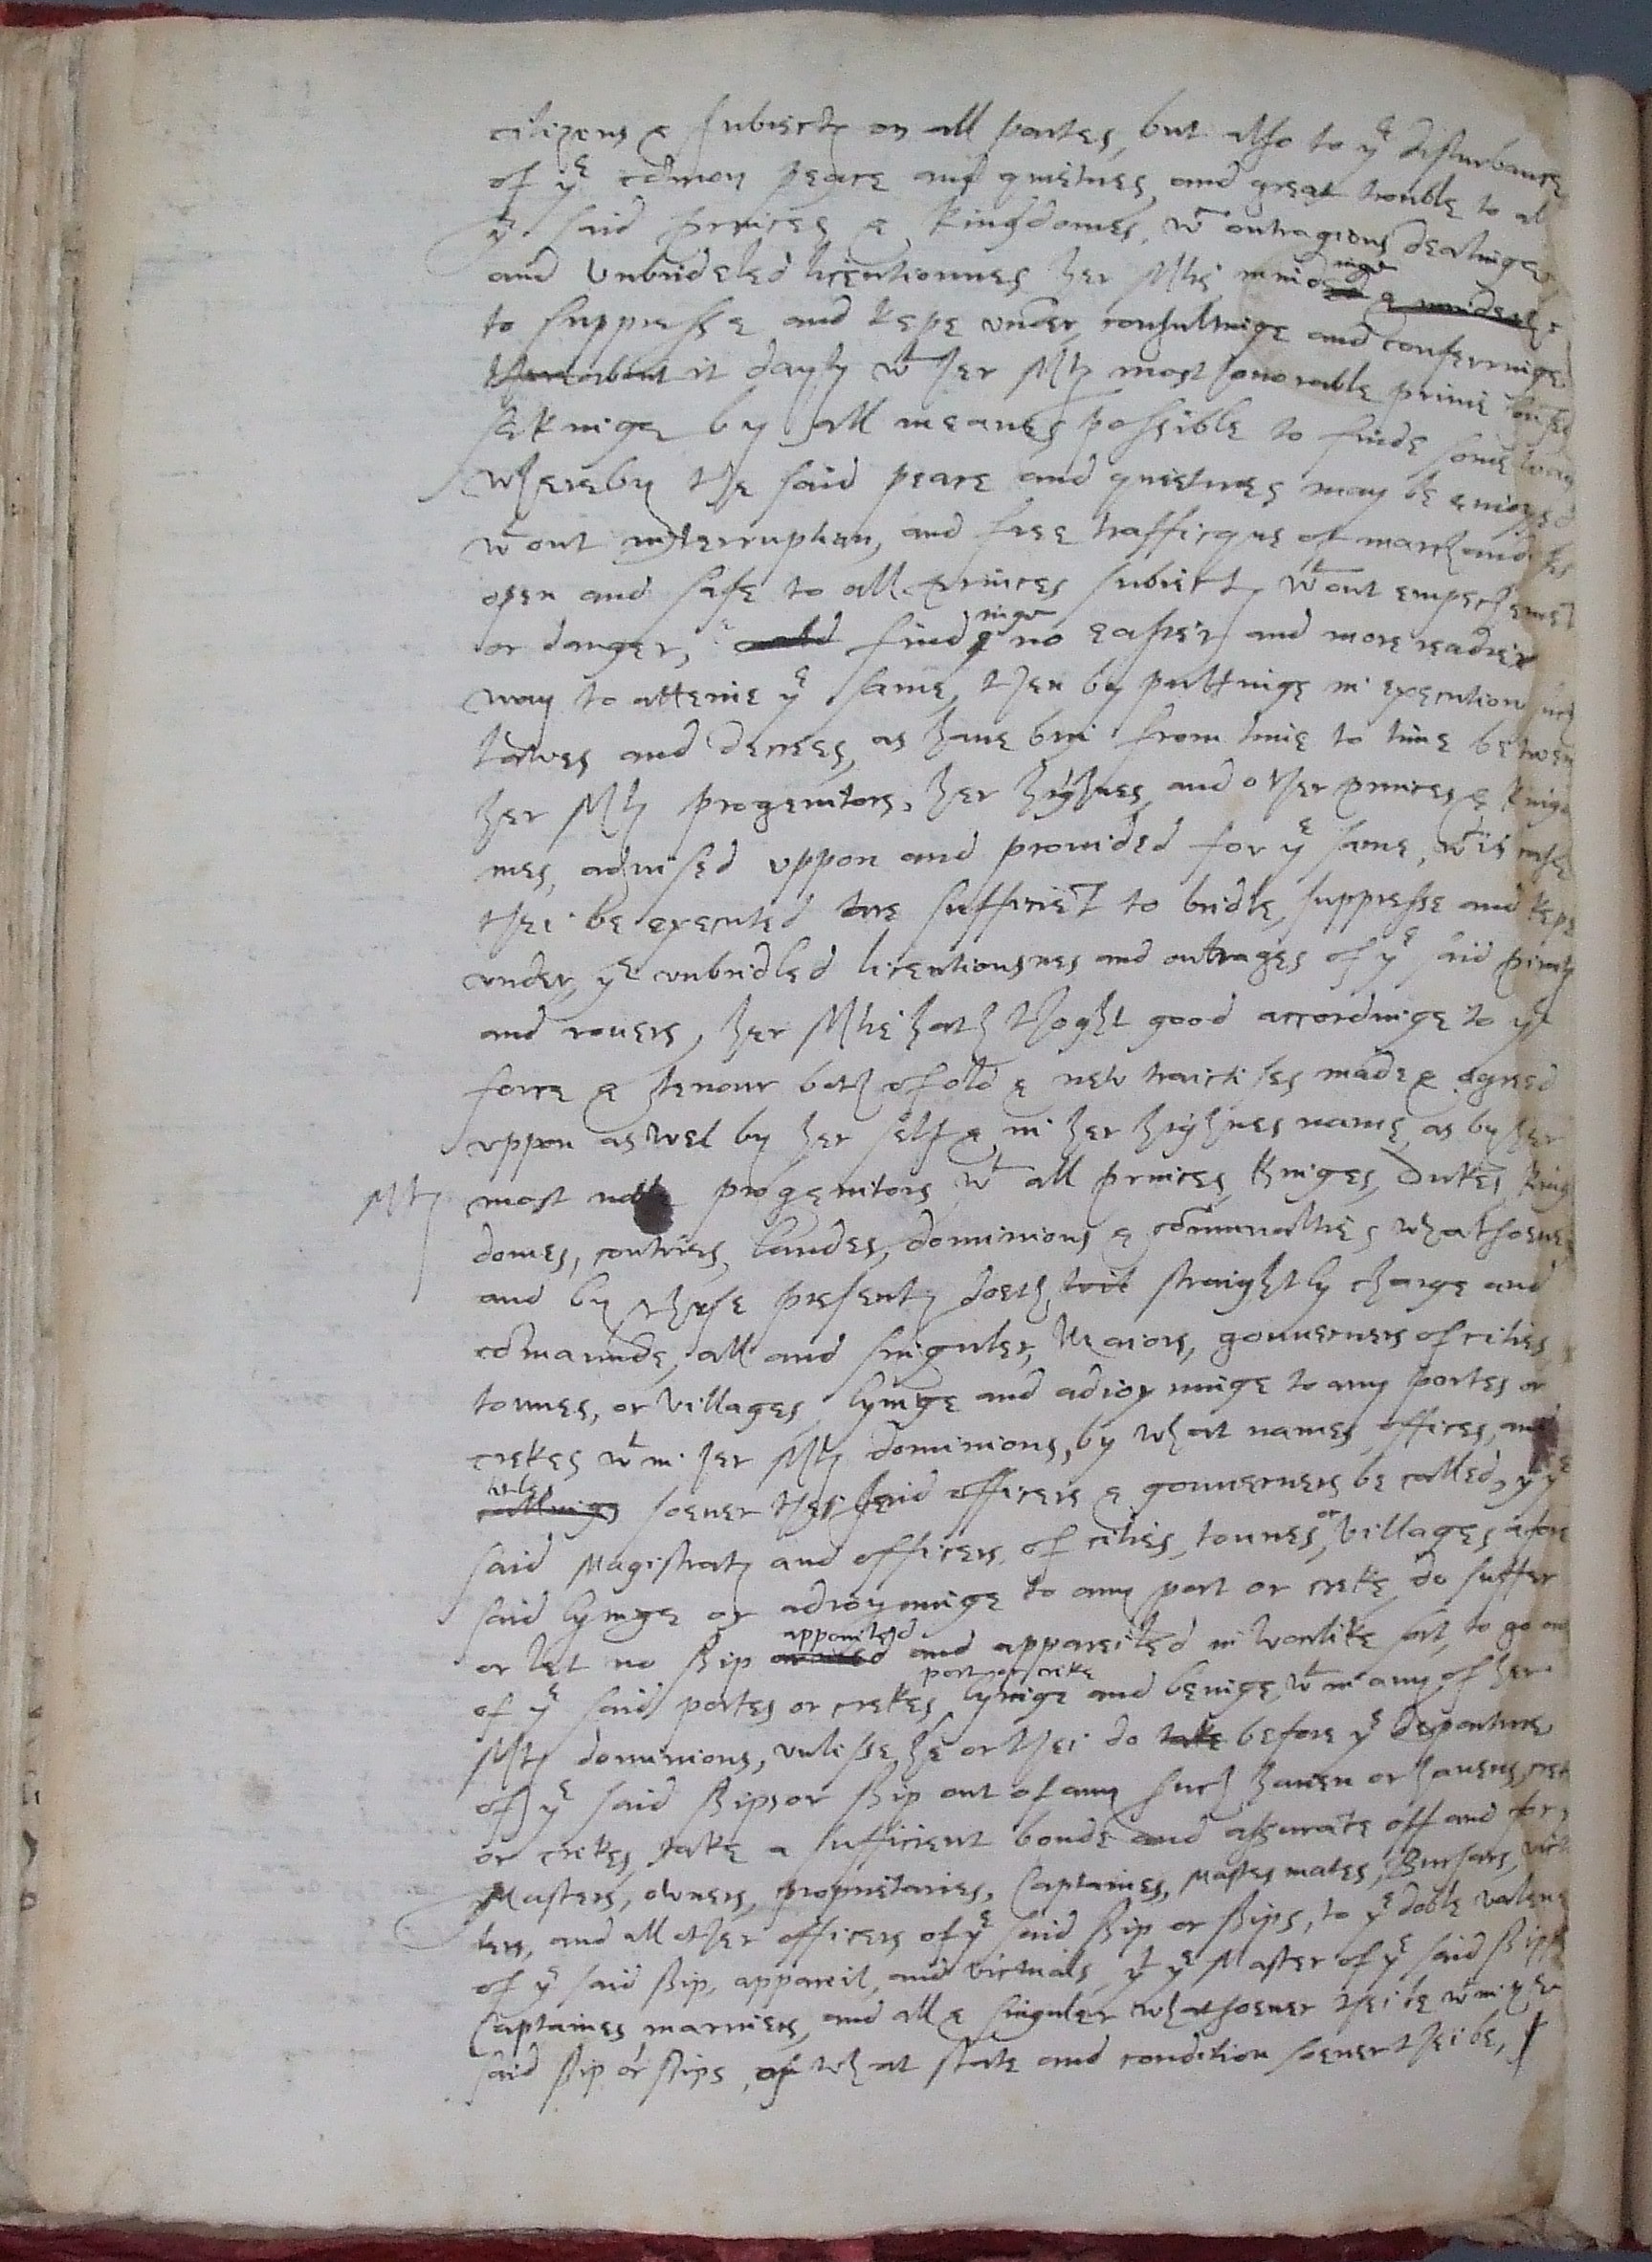 citizens & subiects on all partes, but also to ye disturbance
of ye cōmon peace and quietnes, and great trouble to al
ye said princes & kingdomes, wch outragious dealinges
and unbrideled licentiounes her Mtie mindinge
to suppresse and kepe under, consultinge and conferringe
thereabout it dayly wt her Mties most honorable privie counsel
sekinge by all meanes possible to finde some way
whereby the said peace and quietnes may be enioyed
wtout interruption, and free trafficque of marchandises
open and safe to all princes subiects wtout empechemēt
or danger, and findinge no easier and more readier
way to atteine ye same, then by puttinge in execution such
lawes and decrees, as haue bin from time to time betwen
her Mties progenitors, her highnes, and other princes & kingdo
mes, aduised uppon and prouided for ye same, wch if
thei be executed are sufficiēt to bridle, suppresse and kepe
under, ye unbridled licentiousnes and outrages of ye said pirats
and rouers, her Mtie hath thoght good accordinge to ye
force & tenour both of old & new traictises made & agreed
uppon as wel by her self & in her highnes name, as by her
Mties most noble progenitors wt all princes, kinges, Dukes, king
domes, contries, landes, dominions & cōmunalties whatsoeuer
and by these presents doeth wil straightly charge and
cōmaunde, all and singuler, Maiors, gouuerners of cities
tounes, or villages, lyinge and adioyninge to any portes or
crekes wtin her Mties dominions, by what names, offices, and
titles callings soeuer thes said officers & gouuerners be called, yt ye
said Magistrats and officers, of cities, tounes, or villages afore
said lyinge or adioyninge to any port or creke, do suffer
or let no ship armed appointed and appareiled in warlike sort, to go out
of ye said portes or crekes, port or creke lyinge and beinge wtin any of her
Mties dominions, unlesse he or thei do take before ye departure
of ye said ships or ship out of any such hauen or hauens, creke
or crikes, take a sufficient bonde and assurāce off and for ye
Masters, owners, proprietaries, Captaines, Masters mates, Bursars, victa
lers, and all other officers of ye said ship or ships, to ye doble valeue
of ye said ship, appareil, and victuals, yt ye Master of ye said ship
Captaines, marriners, and all & singuler whatsoeuer thei be wtin ye
said ship or ships, of what state and condition soeuer thei be,